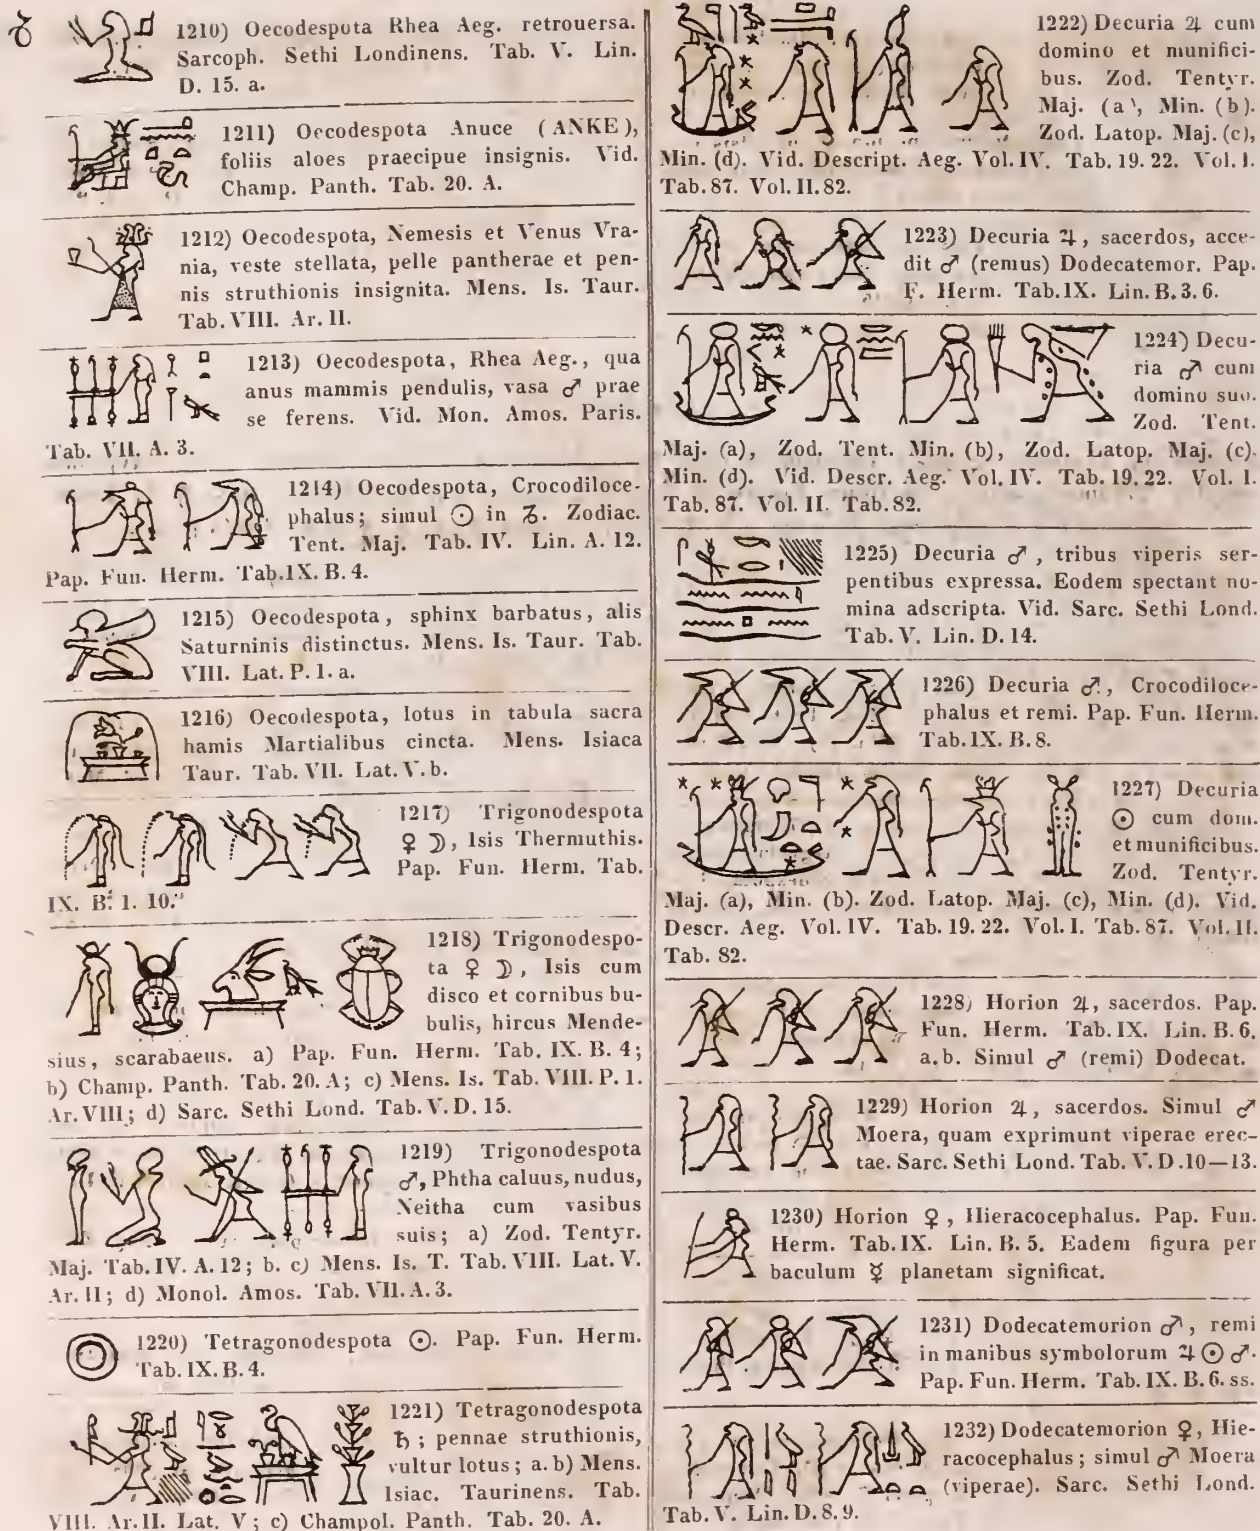 ♉ 1210) Oecodespota Rhea Aeg. retrouersa.
Sarcoph. Sethi Londinens. Tab. V. Lin.
D. 15. a.
1211) Oecodespota Anuce (ANKE),
foliis aloes praecipue insignis. Vid.
Champ. Panth. Tab. 20. A.
1212) Oecodespota, Nemesis et Venus Vra-
nia, veste stellata, pelle pantherae et pen-
nis struthionis insignita. Mens. Is. Taur.
Tab. VIII. Ar. II.
1213) Oecodespota, Rhea Aeg., qua
anus mammis pendulis, vasa ♂ prae
se ferens. Vid. Mon. Amos. Paris.
Tab. VII. A. 3.
1214) Oecodespota, Crocodiloce-
phalus; simul ☉ in ♑. Zodiac.
Tent. Maj. Tab. IV. Lin. A. 12.
Pap. Fun. Herm. Tab. IX. B. 4.
1215) Oecodespota, sphinx barbatus, alis
Saturninis distinctus. Mens. Is. Taur. Tab.
VIII. Lat. P. 1. a.
1216) Oecodespota, lotus in tabula sacra
hamis Martialibus cincta. Mens. Isiaca
Taur. Tab. VII. Lat. V. b.
1217) Trigonodespota
♀ ☽, Isis Thermuthis.
Pap. Fun. Herm. Tab.
IX. B. 1. 10.
1218) Trigonodespo-
ta ♀ ☽, Isis cum
disco et cornibus bu-
bulis, hircus Mende-
sius, scarabaeus. a) Pap. Fun. Herm. Tab. IX. B. 4;
b) Champ. Panth. Tab. 20. A; c) Mens. Is. Tab. VIII. P. 1.
Ar. VIII; d) Sarc. Sethi Lond. Tab. V. D. 15.
1219) Trigonodespota
♂, Phtha caluus, nudus,
Neitha cum vasibus
suis; a) Zod. Tentyr.
Maj. Tab. IV. A. 12; b. c) Mens. Is. T. Tab. VIII. Lat. V.
Ar. II; d) Monol. Amos. Tab. VII. A. 3.
1220) Tetragonodespota ☉. Pap. Fun. Herm.
Tab. IX. B. 4.
1221) Tetragonodespota
♄; pennae struthionis,
vultur lotus; a. b) Mens.
Isiac. Taurinens. Tab.
VIII. Ar. II. Lat. V; c) Champol. Panth. Tab. 20. A.
1222) Decuria ♃ cum
domino et munifici-
bus. Zod. Tentyr.
Maj. (a), Min. (b).
Zod. Latop. Maj. (c),
Min. (d). Vid. Descript. Aeg. Vol. IV. Tab. 19. 22. Vol. I.
Tab. 87. Vol. II. 82.
1223) Decuria ♃, sacerdos, acce-
dit ♂ (remus) Dodecatemor. Pap.
F. Herm. Tab. IX. Lin. B. 3. 6.
1224) Decu-
ria ♂ cum
domino suo.
Zod. Tent.
Maj. (a), Zod. Tent. Min. (b), Zod. Latop. Maj. (c).
Min. (d). Vid. Descr. Aeg. Vol. IV. Tab. 19. 22. Vol. I.
Tab. 87. Vol. II. Tab. 82.
1225) Decuria ♂, tribus viperis ser-
pentibus expressa. Eodem spectant no-
mina adscripta. Vid. Sarc. Sethi Lond.
Tab. V. Lin. D. 14.
1226) Decuria ♂, Crocodiloce-
phalus et remi. Pap. Fun. Herm.
Tab. IX. B. 8.
1227) Decuria
☉ cum dom.
et munificibus.
Zod. Tentyr.
Maj. (a), Min. (b). Zod. Latop. Maj. (c), Min. (d). Vid.
Descr. Aeg. Vol. IV. Tab. 19. 22. Vol. I. Tab. 87. Vol. II.
Tab. 82.
1228) Horion ♃, sacerdos. Pap.
Fun. Herm. Tab. IX. Lin. B. 6.
a. b. Simul ♂ (remi) Dodecat.
1229) Horion ♃, sacerdos. Simul ♂
Moera, quam exprimunt viperae erec-
tae. Sarc. Sethi Lond. Tab. V. D. 10—13.
1230) Horion ♀, Hieracocephalus. Pap. Fun.
Herm. Tab. IX. Lin. B. 5. Eadem figura per
baculum ☿ planetam significat.
1231) Dodecatemorion ♂, remi
in manibus symbolorum ♃ ☉ ♂.
Pap. Fun. Herm. Tab. IX. B. 6. ss.
1232) Dodecatemorion ♀, Hie-
racocephalus; simul ♂ Moera
(viperae). Sarc. Sethi Lond.
Tab. V. Lin. D. 8. 9.